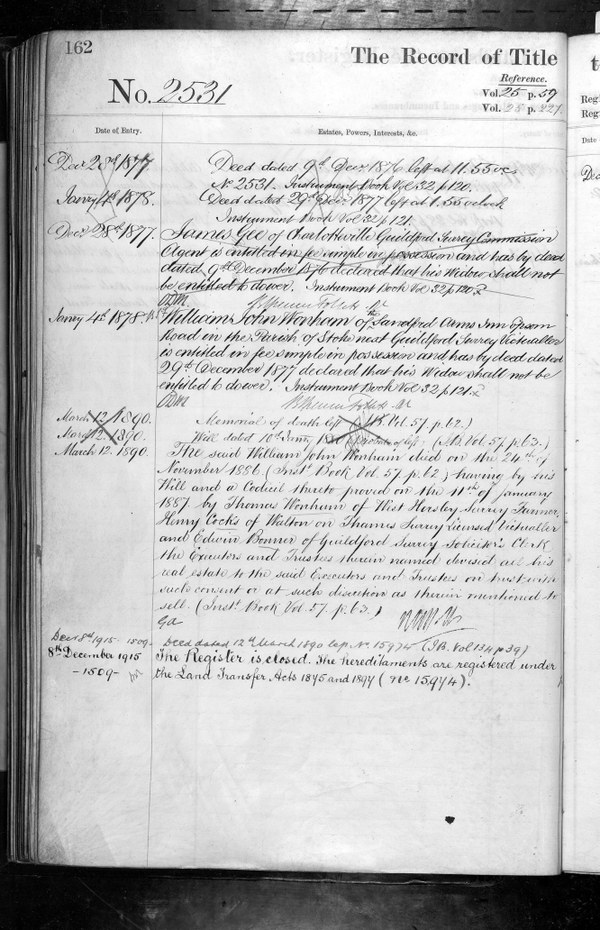 162
The Record of Title
Reference.
No. 2531
Vol. 25 p. 59
Vol. 28 p. 227
Date of Entry.
Estates, Powers, Interests, &c.
Decr 28th 1877. Deed dated 9th Decr 1876 left at 11.55 o'c
No 2531. Instrument Book Vol 32 p 120.
Janry 4th 1878. Deed dated 29th Decr 1877 left at 1.55 o'clock
Instrument Book Vol 32 p 121.
Decr 28th 1877. James Gee of Charlotteville Guildford Surrey Commission
Agent is entitled in fee simple in possession and has by deed
dated 9th December 1876 declared that his Widow shall not
be entitled to dower. Instrument Book Vol 32 p 120.
Janry 4th 1878. William John Wonham of Sandford Arms Inn Epsom
Road in the Parish of Stoke next Guildford Surrey Victualler
is entitled in fee simple in possession and has by deed dated
29th December 1877 declared that his Widow shall not be
entitled to dower. Instrument Book Vol 32 p 121.
March 12 1890. Memorial of death left Vol. 57. p. 62.)
March 12. 1890. Will dated 10th Janry left. Vol. 57. p 63.)
March 12. 1890. The said William John Wonham died on the 24th of
November 1886 (Inst. Book Vol. 57. p. 62) having by his
Will and a Codicil thereto proved on the 11th of January
1887 by Thomas Wonham of West Horsley Surrey Farmer
Henry Cocks of Walton on Thames Surrey Licensed Victualler
and Edwin Bonner of Guildford Surrey Solicitor's Clerk
the Executors and Trustees therein named devised all his
real estate to the said Executors and Trustees on trust with
such consent or at such discretion as therein mentioned to
sell. (Inst. Book Vol. 57. p. 63.)
Decr 8th 1915 - 1509 - Deed dated 12th March 1890 No. 15974 (I.B. Vol 134 p 39)
8th December 1915 The Register is closed. The hereditaments are registered under
- 1509 - the Land Transfer Acts 1875 and 1897 (No. 15974).